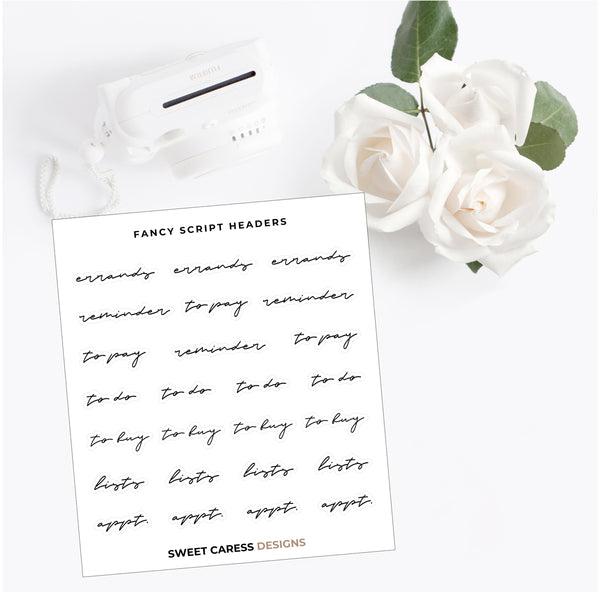 FUJIFILM
FANCY SCRIPT HEADERS
errands errands errands
reminder to pay reminder
to pay reminder to pay
to do to do to do to do
to buy to buy to buy to buy
lists lists lists lists
appt. appt. appt. appt.
SWEET CARESS DESIGNS